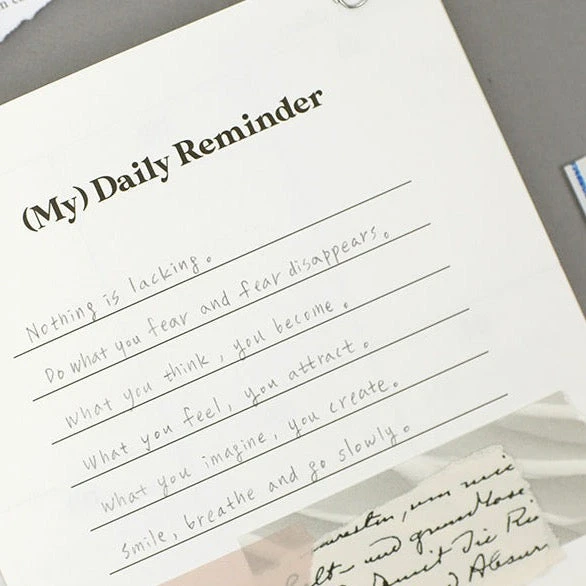 (My) Daily Reminder
Nothing is lacking.
Do what you fear and fear disappears.
What you think, you become.
What you feel, you attract.
What you imagine, you create.
Smile, breathe and go slowly.
und